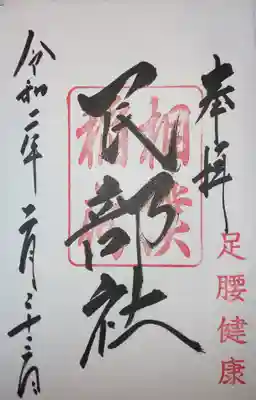 奉拝
足腰健康
民部社
相撲
稲荷
令和二年二月二十二日